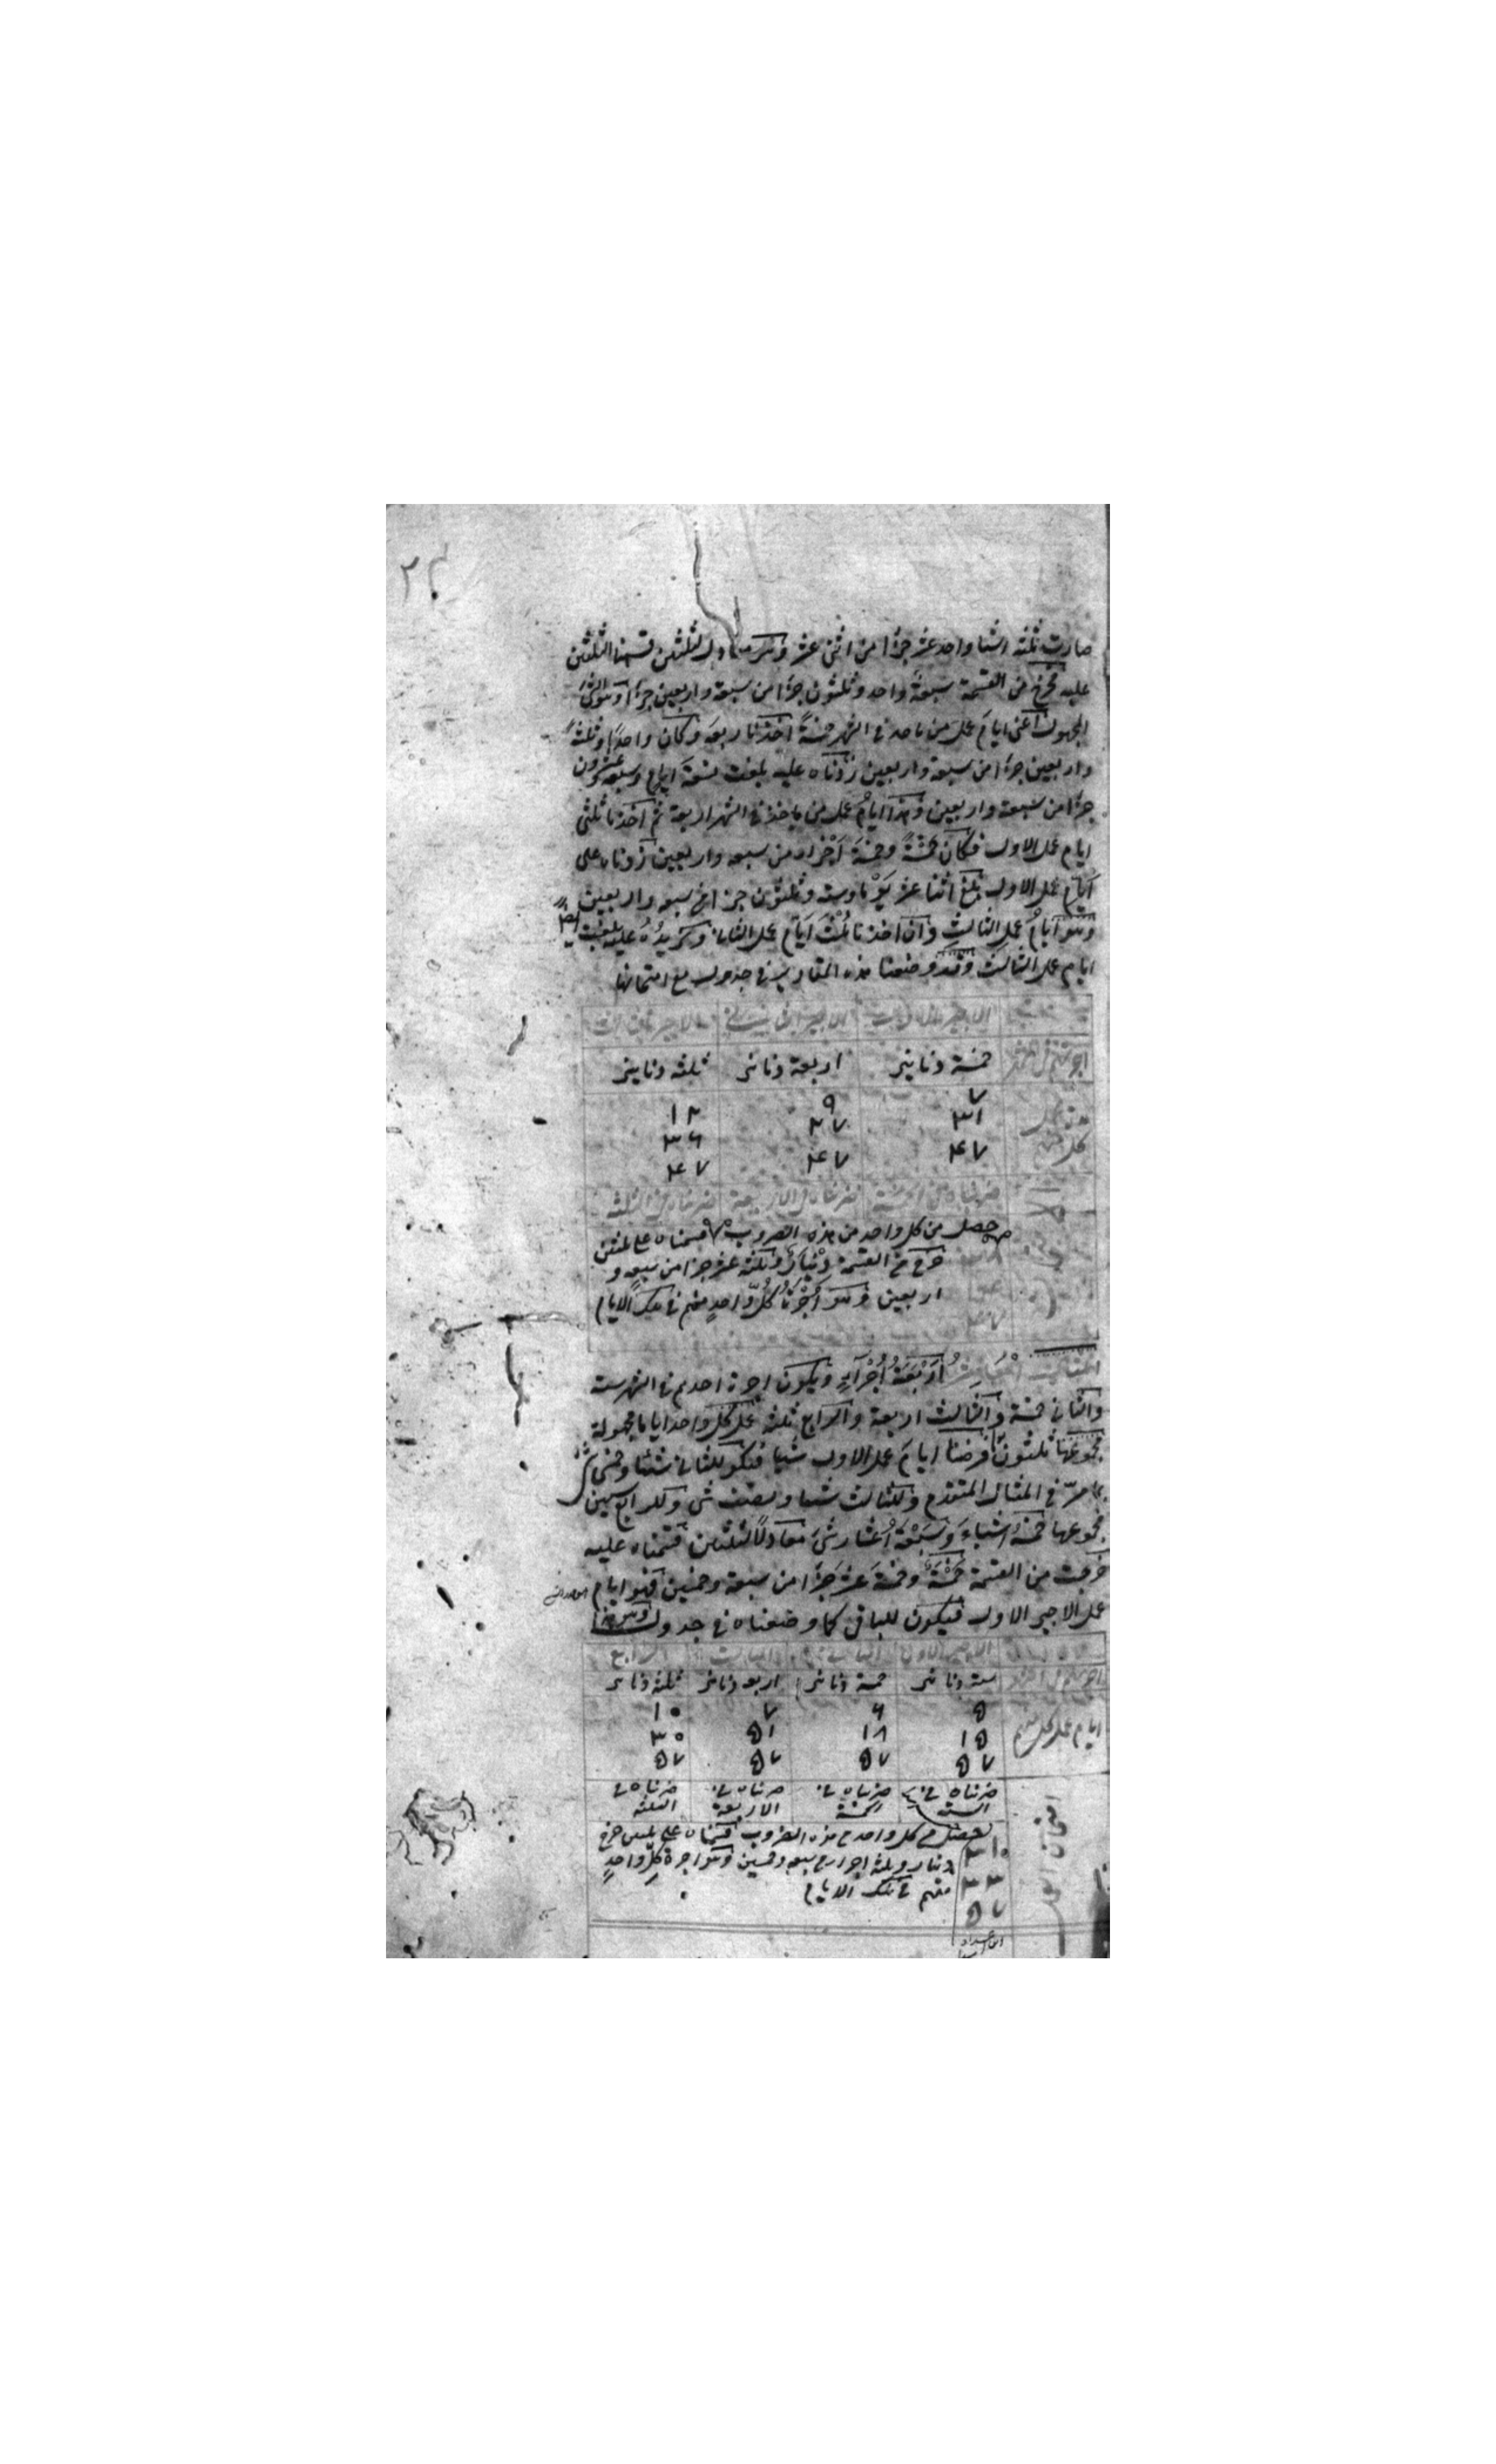 صارت ثلثة اشيا واحد عشر جزءا من اثنى عشر لثلثين قسمنا الثلثين
عليه مخرج من القسمة سبعة واحد وثلثون جزءا من سبعة واربعين جزءا وهو الشئ
المجهول اعنى ايام عمل من ياخذ فى الشهر خمسة اخذنا ربعه وكان واحدا وثلثة
واربعين جزءا من سبعة واربعين زدناه عليه بلغت تسعة ايام وسبعة وعشرون
جزءا من سبعة واربعين وهذا ايام عمل من ياخذ فى الشهر اربعة ثم اخذنا ثلثى
ايام عمل الاول فكان خمسة وخمسة اجزاء من سبعه واربعين زدناه على
ايام عمل الاول بلغ اثنا عشر يوما وستة وثلثون جزءا من سبعه واربعين
وهو ايام عمل الثالث وان اخذنا ثلث ايام عمل الثانى ونزيده عليه بلغت ايضا
ايام عمل الثالث وقد وضعنا هذه المقادير فى جدول مع امتحانها
الاجير الاول الاجير الثانى الاجير الثالث
خمسة دنانير اربعة دنانير ثلثة دنانير
٧ ٩ ١٢
٣١ ٢٧ ٣٦
٤٧ ٤٧ ٤٧
ضربناه فى الخمسة ضربناه فى الاربعة ضربناه فى الثلثة
حصل من كل واحد من هذه الضروب قسمناه على ثلثين
خرج من القسمة دينار وثلثة عشر جزءا من سبعة و
اربعين وهو اجرة كل واحد منهم فى تلك الايام
اربعة اجراء ويكون اجرة احدهم فى الشهر ستة
والثانى خمسة والثالث اربعة والرابع ثلثة عمل كل واحد اياما مجهولة
مجموعها ثلثون فرضنا ايام عمل الاول شيا فيكون للثانى شيئا وخمس شئ
بما مر فى المثال المتقدم وللثالث شيا ونصف شى وللرابع شيئين
مجموعها خمسة اشياء وسبعة اعشار شئ معادلا لثلثين قسمناه عليه
خرجت من القسمة خمسة وخمسة عشر جزءا من سبعة وخمسين فهو ايام
عمل الاجير الاول فيكون للباقى كما وضعناه فى جدول وهو هذا
الاجير الاول الثانى الثالث الرابع
ستة دنانير خمسة دنانير اربعه دنانير ثلثة دنانير
ايام عمل كل منهم ٥ ٦ ٧ ١٠
١٥ ١٨ ٥١ ٣٠
٥٧ ٥٧ ٥٧ ٥٧
ضربناه فى الستة ضربناه فى الخمسة ضربناه فى الاربعة ضربناه فى الثلثة
حصل من كل واحد من هذه الضروب قسمناه على ثلثين خرج
دينار وثلثة اجزاء من سبعه وخمسين وهو اجرة كل واحد
منهم فى تلك الايام
٣١
٣٣
٥٧